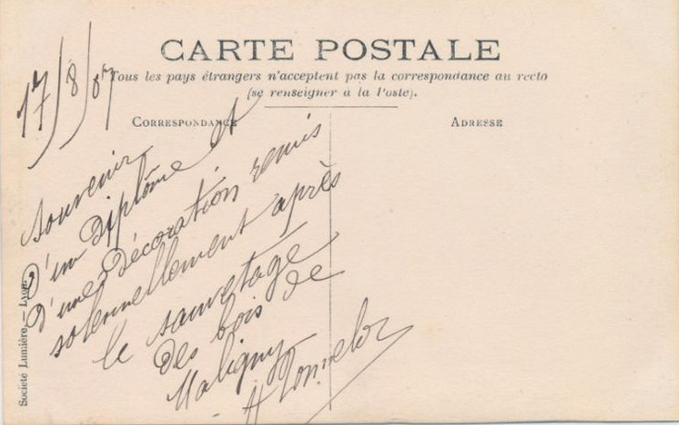 CARTE POSTALE
Tous les pays étrangers n'acceptent pas la correspondance au recto
(se renseigner à la Poste).
CORRESPONDANCE
ADRESSE
17/8/07
Souvenir
d'un Diplôme et
d'une Décoration remis
solennellement après
le sauvetage
des bois de
Maligny
H
Société Lumière. — Lyon